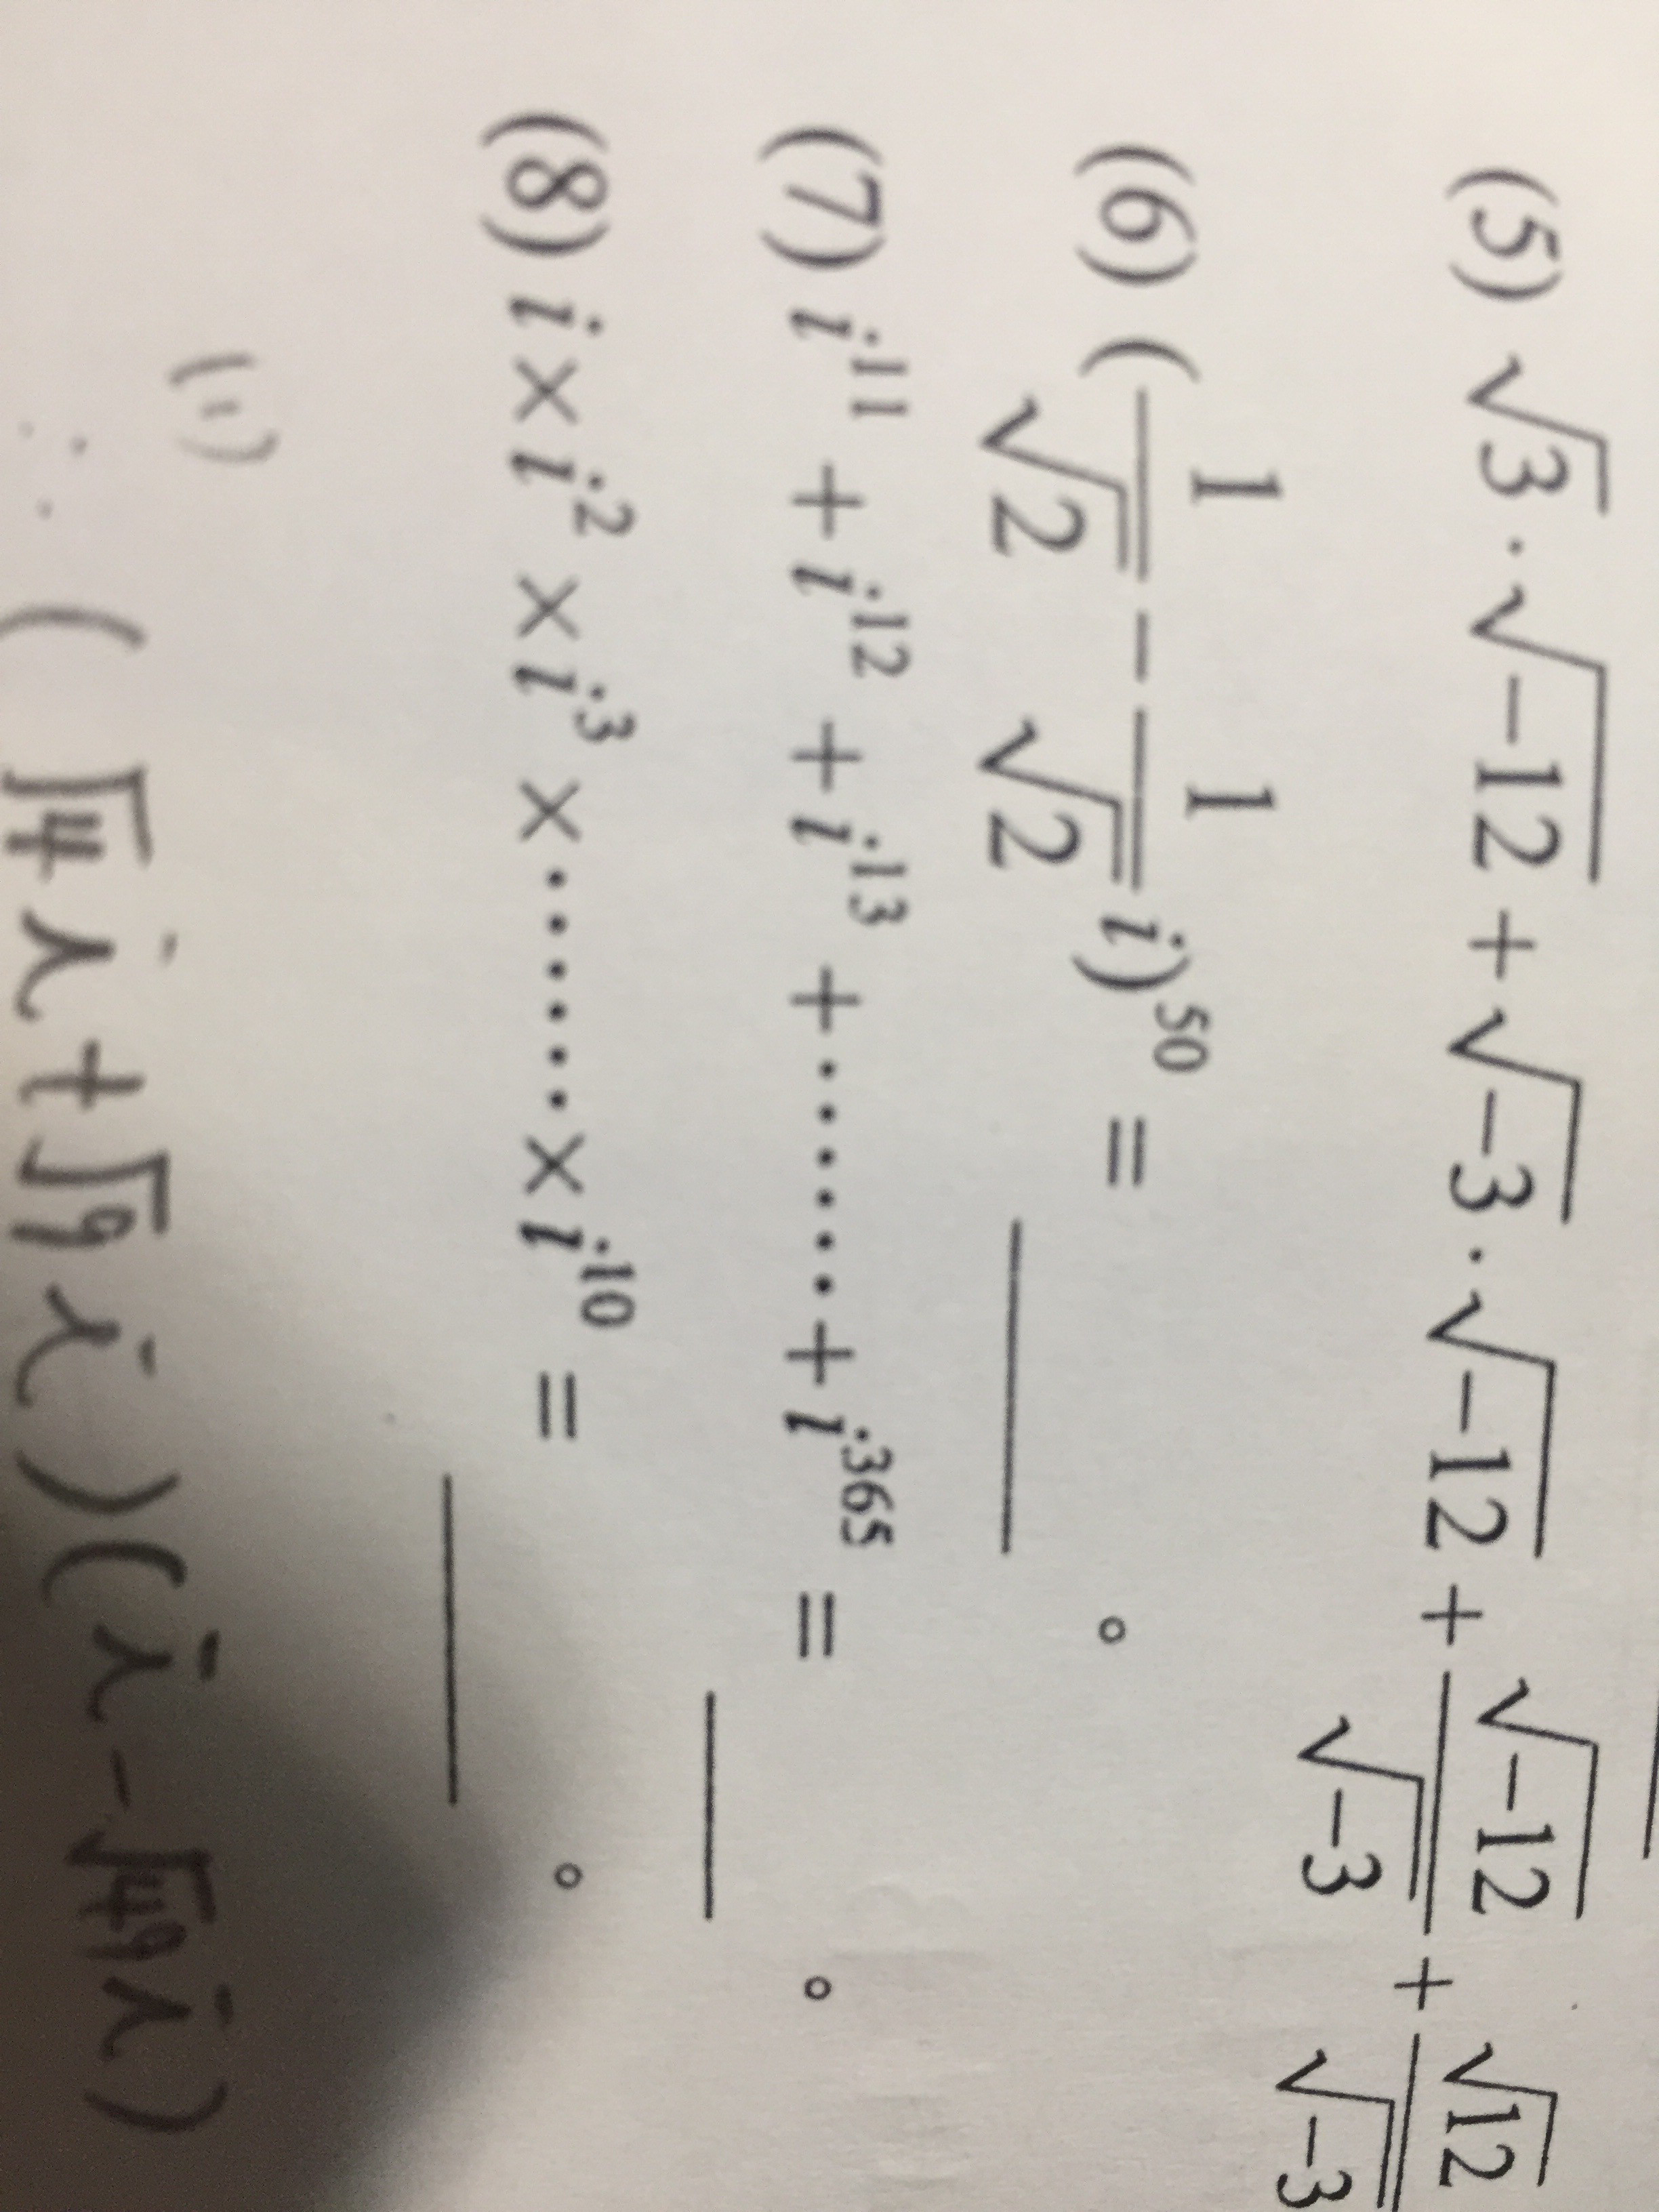 (5) √3·√-12 + √-3·√-12 + √-12/√-3 + √12/√-3
(6) (1/√2 - 1/√2 i)^50 = ______。
(7) i^11 + i^12 + i^13 + ······ + i^365 = ______。
(8) i × i^2 × i^3 × ······ × i^10 = ______。
(1)
∴ (√4 i + √9 i)(i - √49 i)